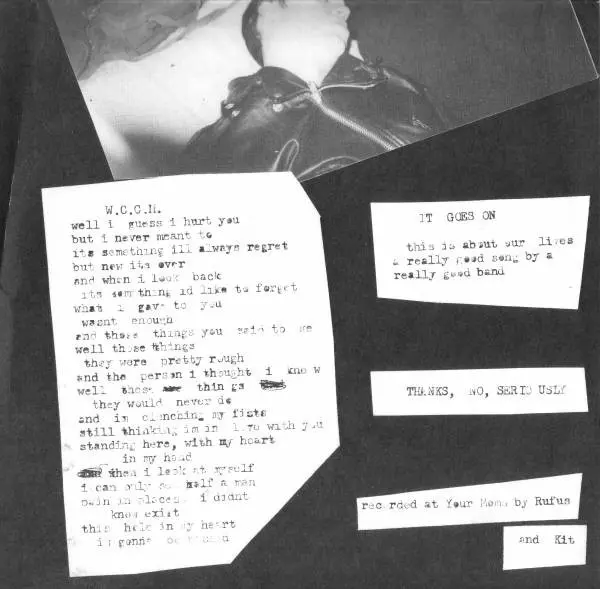 W.C.G.H.
well i guess i hurt you
but i never meant to
its something ill always regret
but now its over
and when i look back
its something id like to forget
what i gave to you
wasnt enough
and those things you said to me
well those things
they were pretty rough
and the person i thought i knew
well those things
they would never do
and im clenching my fists
still thinking im in love with you
standing here, with my heart
in my hand
when i look at myself
i can only see half a man
pain in places i didnt
know exist
this hole in my heart
is gonna
IT GOES ON
this is about our lives
a really good song by a
really good band
THANKS, NO, SERIOUSLY
recorded at Your Moms by Rufus
and Kit